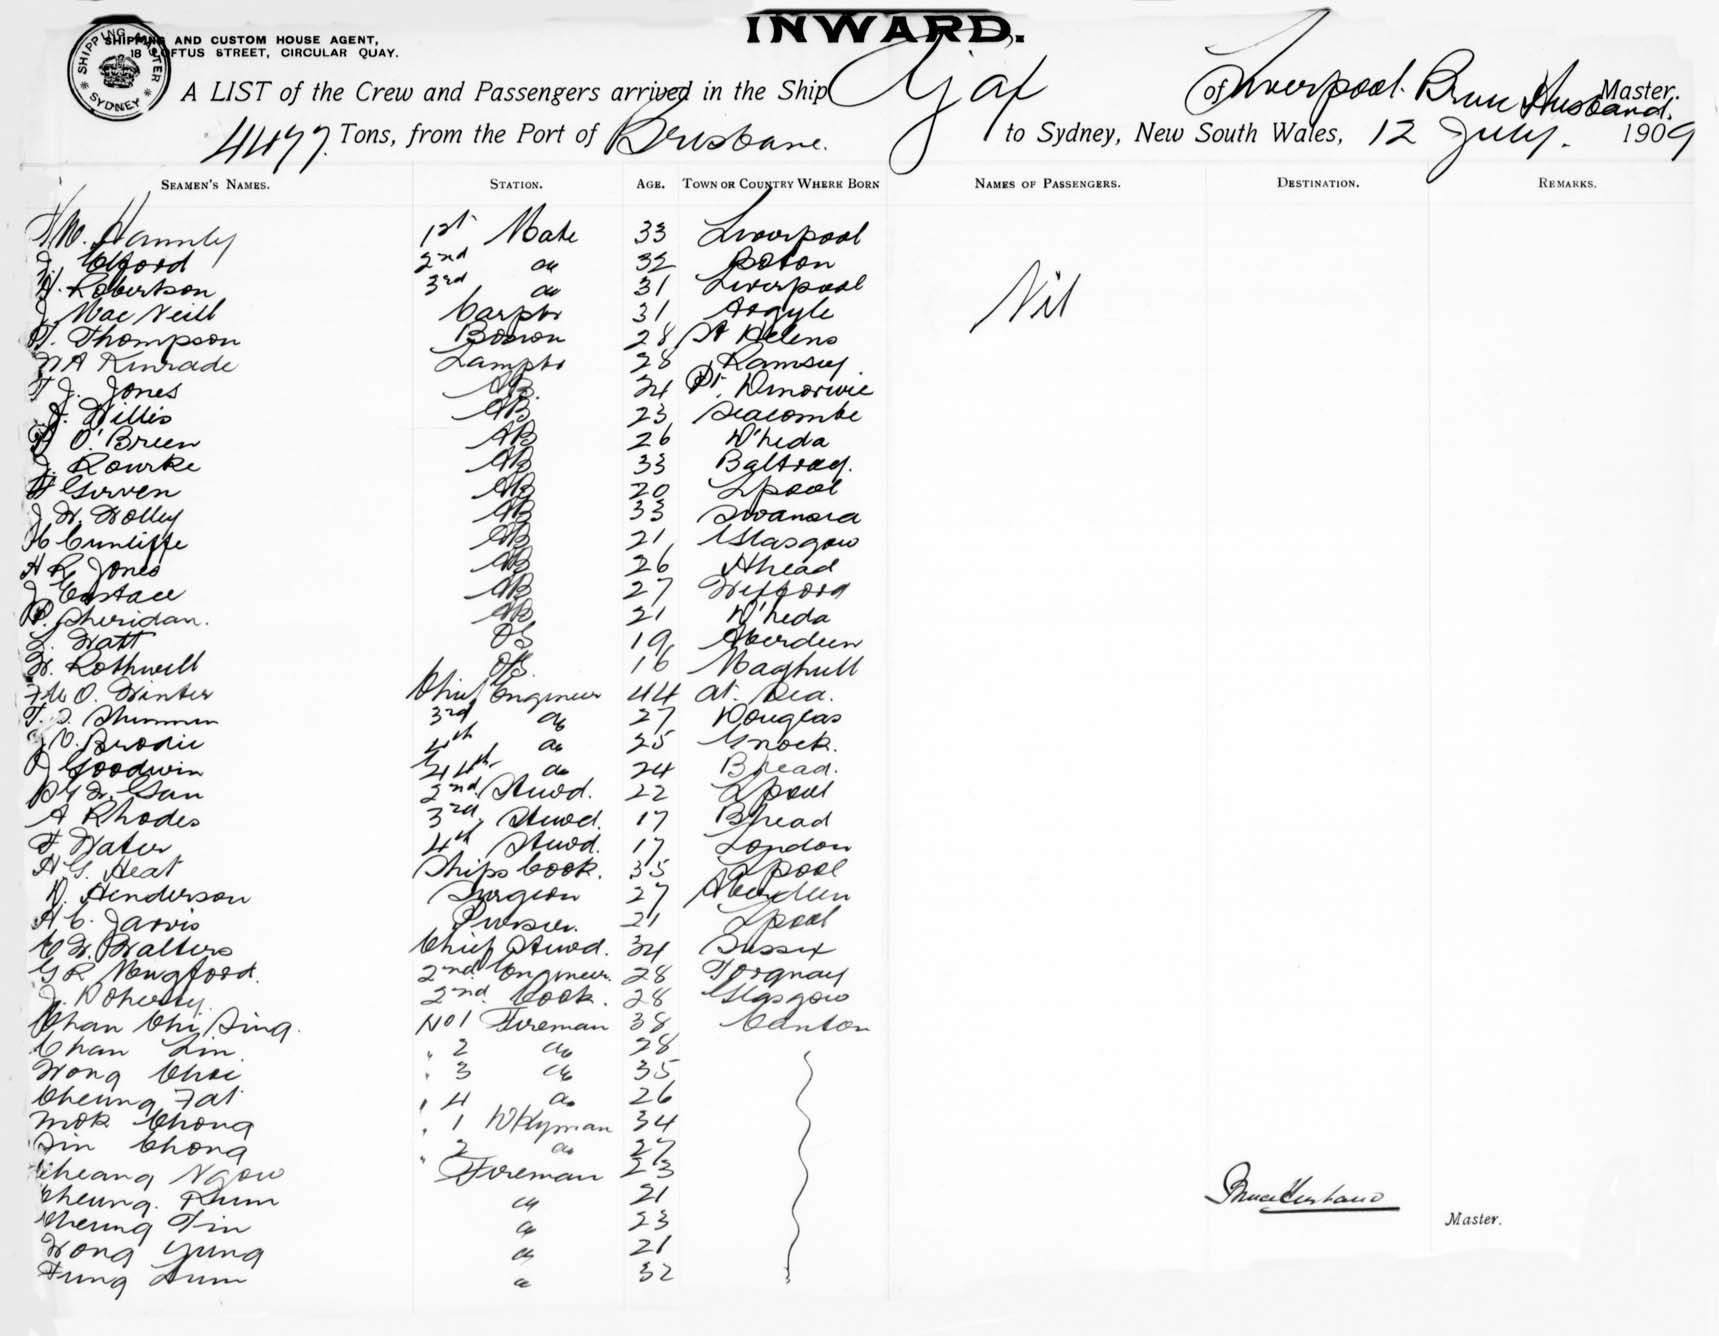 INWARD.
SHIPPING MASTER SYDNEY
SHIPPING AND CUSTOM HOUSE AGENT,
18 LOFTUS STREET, CIRCULAR QUAY.
A LIST of the Crew and Passengers arrived in the Ship Ajax of Liverpool. Bruce Husband. Master.
4477. Tons, from the Port of Brisbane. to Sydney, New South Wales, 12 July. 1909
SEAMEN'S NAMES. STATION. AGE. TOWN OR COUNTRY WHERE BORN NAMES OF PASSENGERS. DESTINATION. REMARKS.
1st Mate 33 Liverpool
2nd do 32
Nil
H. Robertson 3rd do 31 Liverpool
J. MacNeill Carptr 31 Argyle
Thompson Bosson 28 St Helens
WA Kinrade Lamptr 28 Ramsey.
T J. Jones AB. 24 Pt. Dinorwic
J. Willis AB 23 Seacombe
O'Brien AB 26 D'heda
J. Rourke AB 33 Baltray.
Girven AB 20 Lpool
J W. Wolley AB 33 Swansea
Cunliffe AB 21 Glasgow
H R. Jones AB 26 Hhead
J Eustace AB 27 Wexford
P. Sheridan. AB 21 D'heda
Watt OS 19 Aberdeen
W. Rothwell OS. 16 Maghull
O. Winter Chief Engineer 44 at. Sea.
T. S. Shimmin 3rd do 27 Douglas
Brodie 4th do 25
J Goodwin 4th do 24 Bhead.
2nd. Stwd. 22 Lpool
A Rhodes 3rd. Stwd. 17 Bhead
F Water 4th Stwd. 17 London
H G. Heat Ships Cook. 35 Lpool
D. Henderson Surgeon 27 Aberdeen
H. C. Jarvis Purser. 21 Lpool
C W. Walters Chief Stwd. 34 Sussex
G R 2nd. Engineer. 28 Torquay
J. Doherty. 2nd. Cook. 28 Glasgow
Chan Chi Sing. No 1 Fireman 38 Canton
Chan Lin. " 2 do 28
Wong Choi " 3 do 35
Cheung Fat " 4 do 26
Mok Chong " 1 Dkyman 34
Sin Chong " 2 do 27
Cheang Ngow Fireman 23
Cheung. Khum do 21
Bruce Husband
Cheung Tin do 23
Master.
Wong Yung do 21
Fung Lum do 32